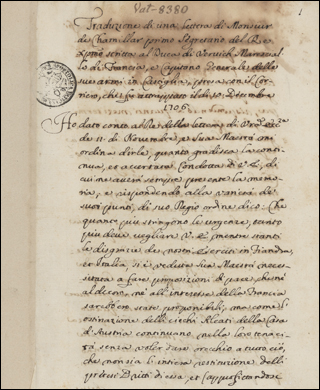 Vat-8380
1
Traduzione di una lettera di Monsieur
de Chamillar primo Segretario del Re
Xpmo scritta al Duca di Vervich Marescial-
lo di Francia, e Capitano Generale delle
sue armi in Castiglia, presa con il Cor-
riero, che fu intercettato il dì 10. Dicembre
1706.
Ho dato conto al Re della lettera di
de 11 di Novembre, e Sua Maestà mi
ordina dirle, quanto gradisca la conti-
nua, et accertata Condotta di V. E., di
cui ne averà sempre presente la memo-
ria, e rispondendo alla varietà de
suoi punti, di suo Regio ordine dico: Che
quanto più stringono le urgenze, tanto
più deve vegliare V. E. mentre stante
le disgrazie de nostri eserciti in Fiandra,
et Italia si è veduta Sua Maestà neces-
sitata a fare proposizioni di pace, che mai
al decoro, nè all' interesse della Francia
sarebbero state proponibili, ma come l'
ostinazione delli Alleati della Casa
di Austria continuano nella loro tenaci-
tà, senza voler dare orecchio a tutto ciò,
che non sia l' intiera restituzione delli
pretesi Dritti di essa, et